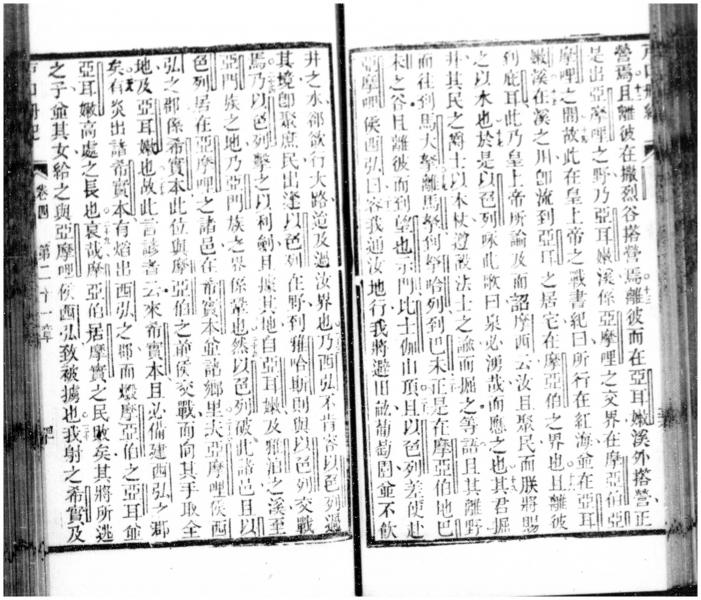 營焉且離彼在撒烈谷搭營焉離彼而在亞耳嫩溪外搭營正
是出亞摩哩之野乃亞耳嫩溪係亞摩哩之交界在摩亞伯亞
摩哩之間故此在皇上帝之戰書紀曰所行在紅海並在亞耳
嫩溪在溪之川卽流到亞耳之居宅在摩亞伯之界也且離彼
到庇耳此乃皇上帝所諭及而詔摩西云汝且聚民而朕將賜
之以水也於是以色列咏此歌曰泉必湧哉而應之也其君掘
井其民之爵士以木杖遵設法士之諭而掘之等語且其離野
而往到馬大拏離馬拏到拏哈列到巴末正是在摩亞伯地巴
末之谷且離彼而到望也示門比士伽山頂且以色列差使赴
亞摩哩侯西弘曰容我通汝地行我將避田畝葡萄園並不飲
井之水卻欲行大路道及過汝界也乃西弘不肯容以色列過
其境卽聚庶民出逢以色列在野到雅哈斯則與以色列交戰
焉乃以色列擊之以利劍且據其地自亞耳嫩及雅泊之溪至
亞門族之地乃亞門族之界係鞏也然以色列破此諸邑且以
色列居在亞摩哩之諸邑在希實本並諸鄉里夫亞摩哩侯西
弘之郡係希實本此位與摩亞伯之前侯交戰而向其手取全
地及亞耳嫩也故此言諺者云來希實本且必備建西弘之郡
矣有炎出諸希實本有焰出西弘之郡而燬摩亞伯之亞耳並
亞耳嫩高處之長也哀哉摩亞伯居摩實之民敗矣其將所逃
之子並其女給之與亞摩哩侯西弘致被擄也我射之希實及
戶口冊紀 卷四 第二十一章